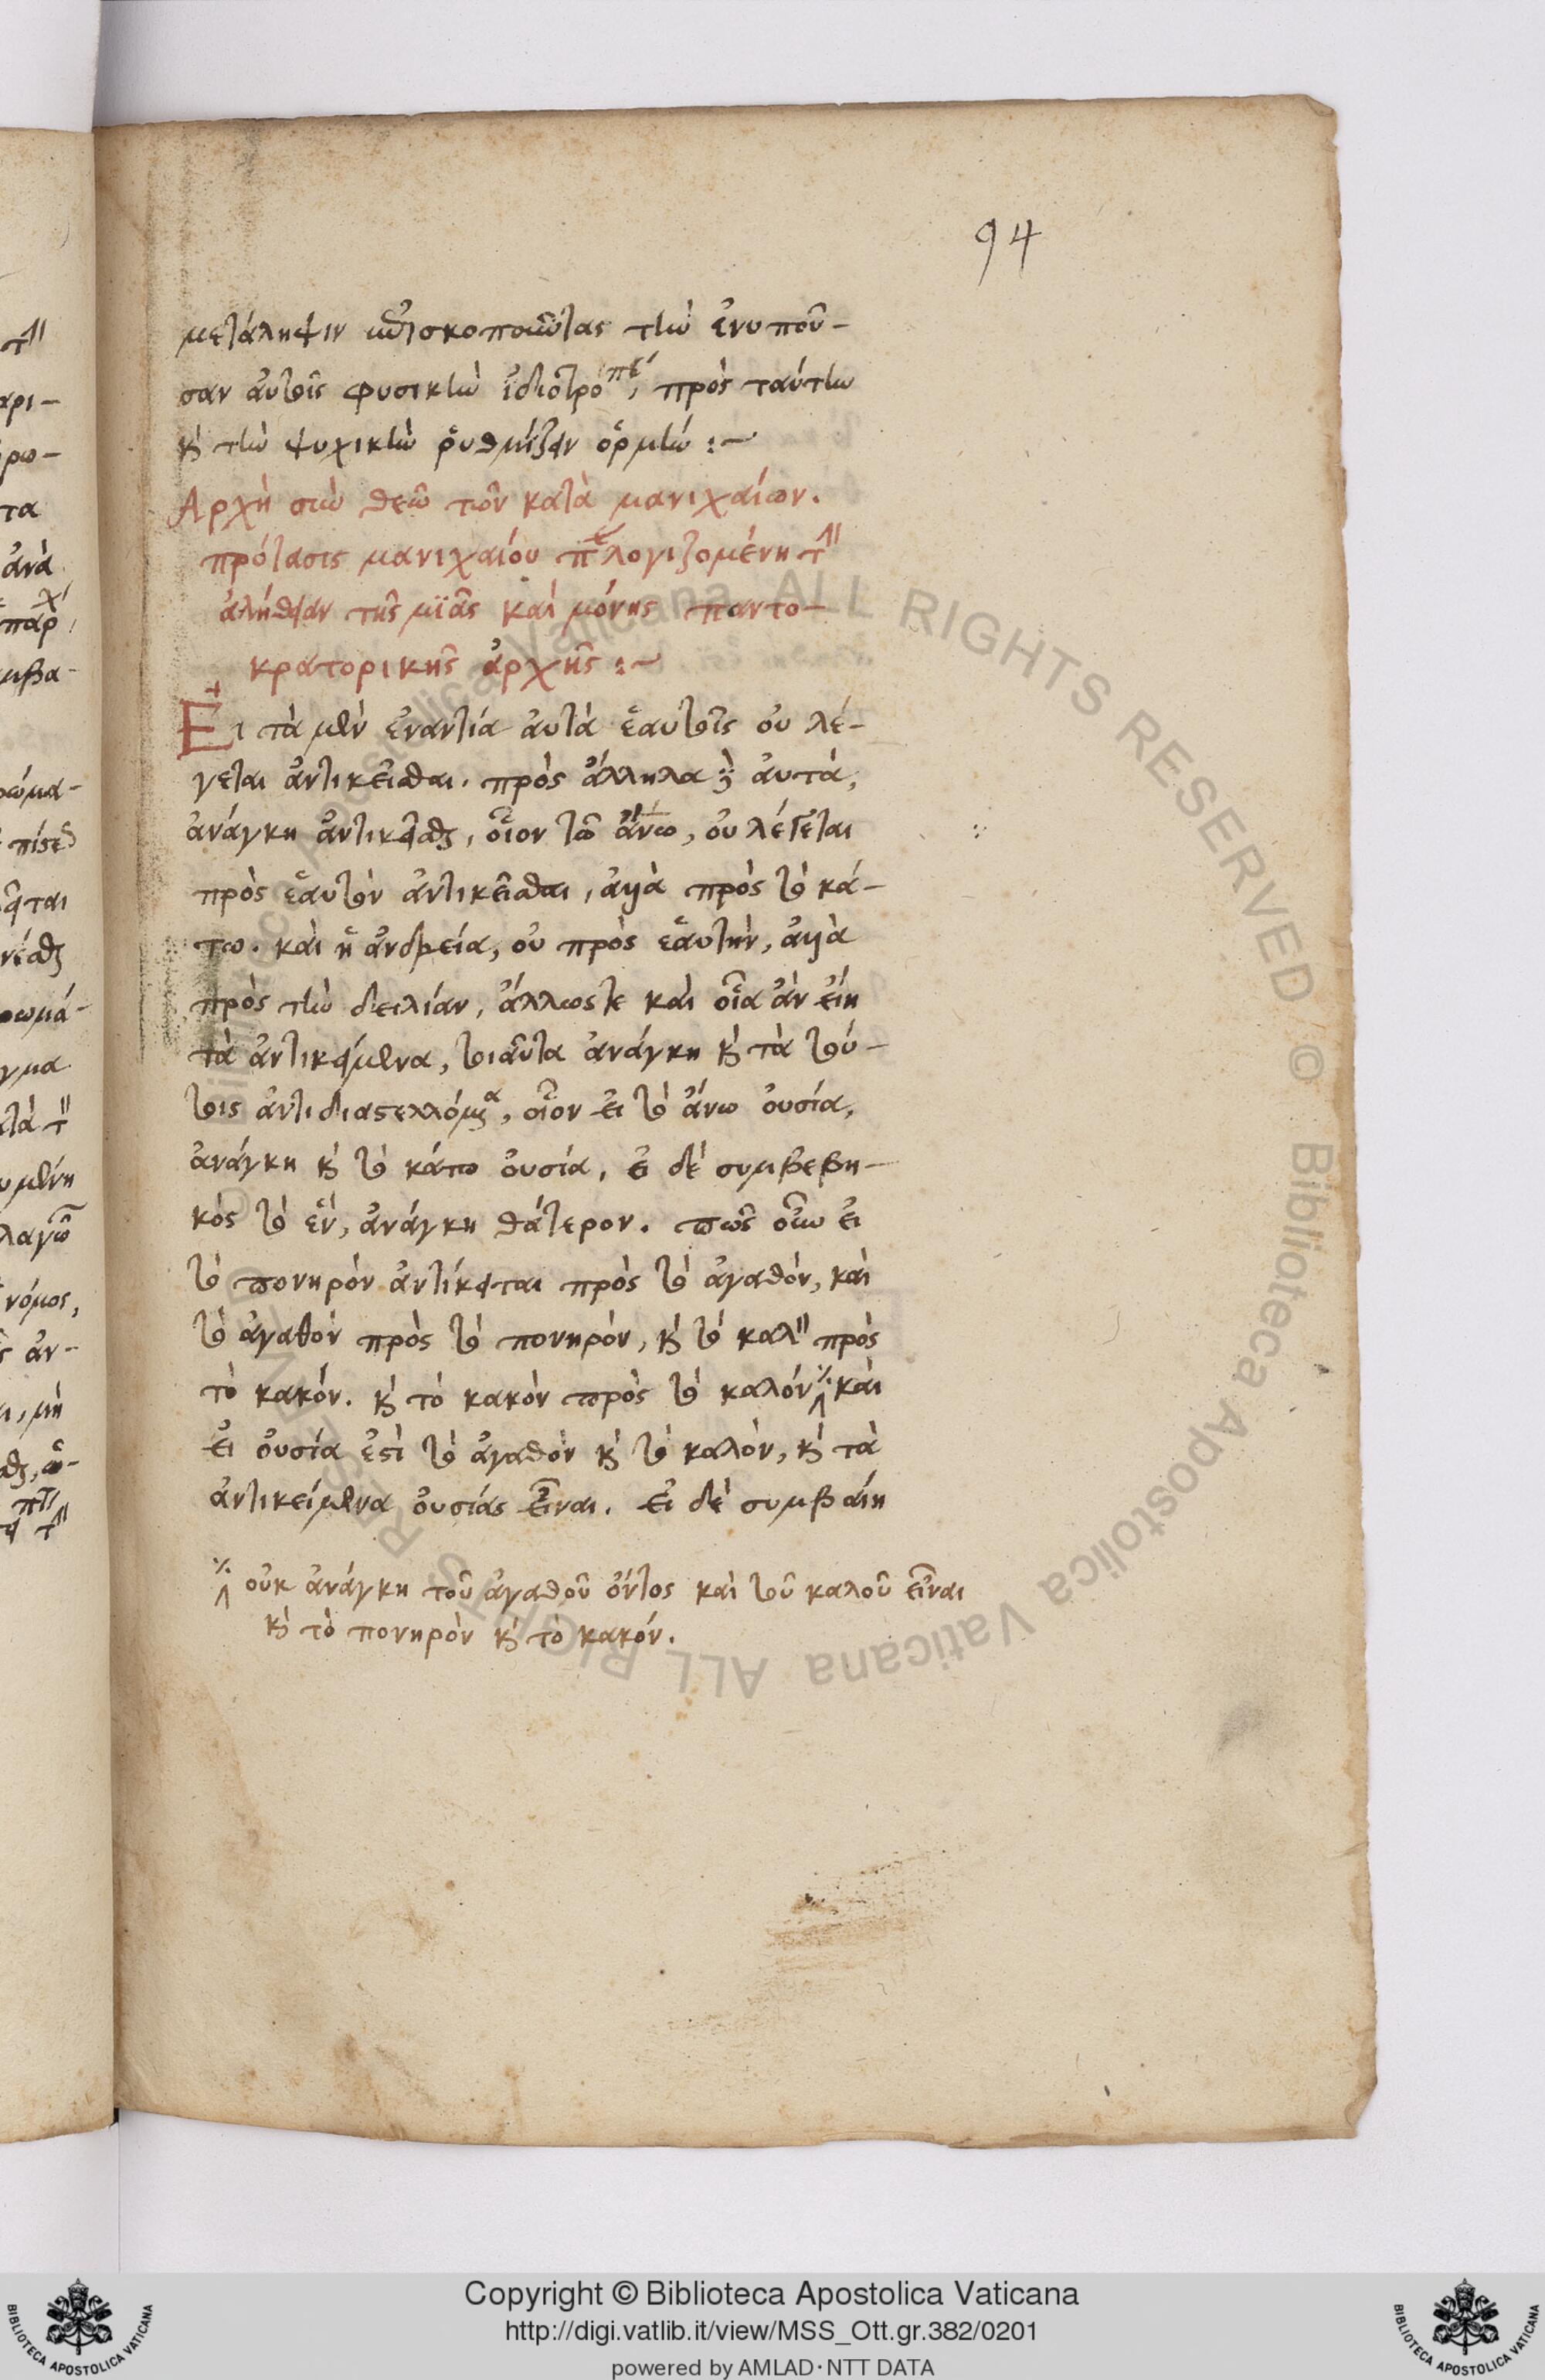 94
μετάληψιν τὴν ἐνυποῦ-
σαν αὐτοῖς φυσικὴν ἰδιοτρο πρὸς ταύτην
καὶ τὴν ψυχικὴν ῥυθμίζειν ὁρμήν :~
Αρχὴ σὺν θεῶ τῶν κατὰ μανιχαίων.
πρότασις μανιχαίου λογιζομένη τὴν
ἀλήθειαν τῆς μϊᾶς καὶ μόνης παντο-
κρατορικῆς ἀρχῆς :~
Ει τὰ μὲν ἐναντία αὐτὰ ἑαυτοῖς οὐ λέ-
γεται ἀντικεῖσθαι. πρὸς ἄλληλα δὲ αὐτὰ,
ἀνάγκη ἀντικεῖσθαι, οἷον τῶ ἄνω, οὐ λέγεται
πρὸς ἑαυτὸν ἀντικεῖσθαι, ἀλλὰ πρὸς τὸ κά-
τω. καὶ ἡ ἀνδρεία, οὐ πρὸς ἑαυτὴν, ἀλλὰ
πρὸς τὴν δειλίαν, ἄλλωστε καὶ οἷα ἂν εἴη
τὰ ἀντικείμενα, τοιαῦτα ἀνάγκη καὶ τὰ τού-
τοις ἀντιδιαστελλόμενα, οἷον εἰ τὸ ἄνω οὐσία,
ἀνάγκη καὶ τὸ κάτω οὐσία, εἰ δὲ συμβεβη-
κὸς τὸ ἓν, ἀνάγκη θάτερον. πῶς οὖν εἰ
τὸ πονηρὸν ἀντίκειται πρὸς τὸ ἀγαθὸν, καὶ
τὸ ἀγαθὸν πρὸς τὸ πονηρὸν, καὶ τὸ καλὸν πρὸς
τὸ κακόν. καὶ τὸ κακὸν πρὸς τὸ καλὸν καὶ
εἰ οὐσία ἐστὶ τὸ ἀγαθὸν καὶ τὸ καλὸν, καὶ τὰ
ἀντικείμενα οὐσίας εἶναι. εἰ δὲ συμβαίη
οὐκ ἀνάγκη τοῦ ἀγαθοῦ ὄντος καὶ τοῦ καλοῦ εἶναι
καὶ τὸ πονηρὸν καὶ τὸ κακόν.
Copyright © Biblioteca Apostolica Vaticana
http://digi.vatlib.it/view/MSS_Ott.gr.382/0201
powered by AMLAD·NTT DATA
BIBLIOTECA APOSTOLICA VATICANA
BIBLIOTECA APOSTOLICA VATICANA
© Biblioteca Apostolica Vaticana ALL RIGHTS RESERVED
© Biblioteca Apostolica Vaticana ALL RIGHTS RESERVED